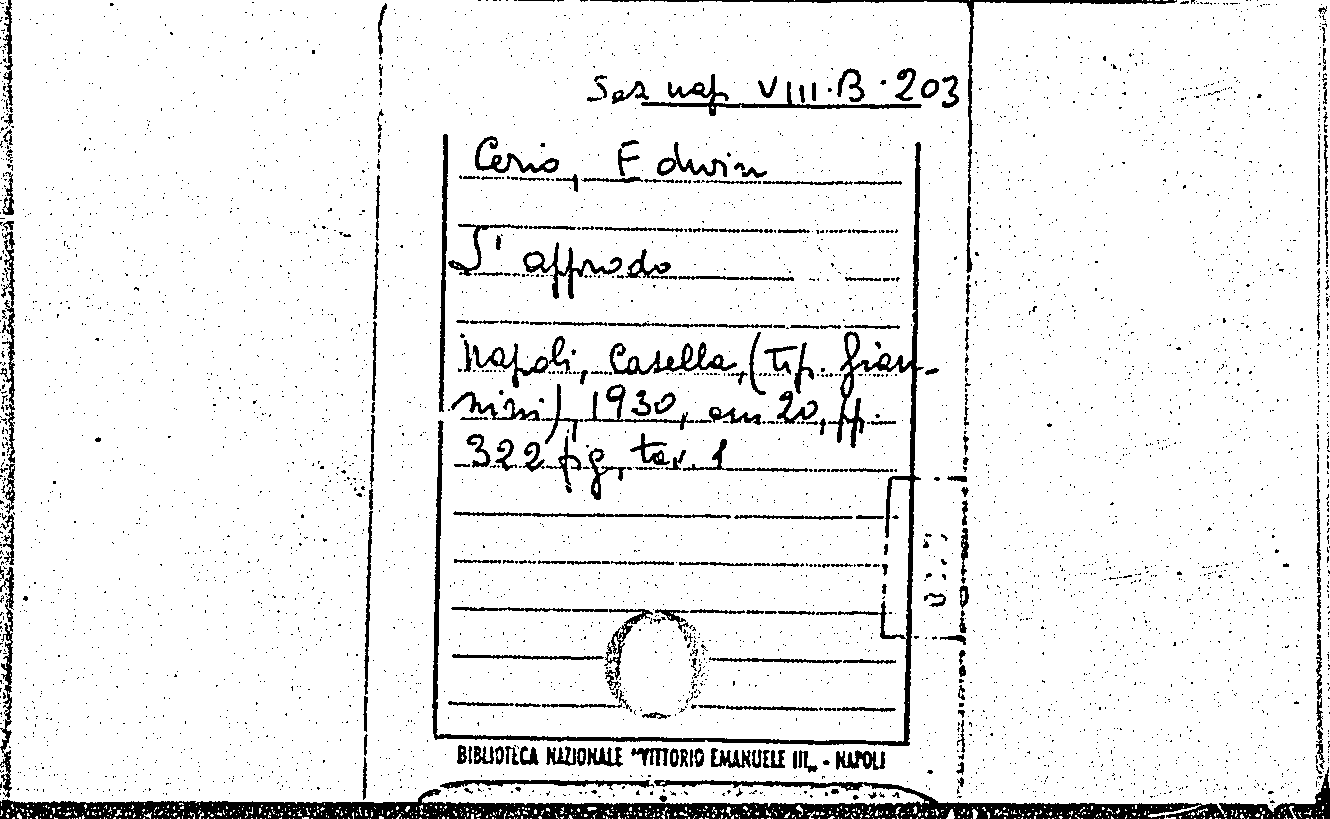 Sez nap VIII.B.203
Cerio, Edwin
L'approdo
Napoli, Casella, (tip. Gian-
nini), 1930, cm 20, pp.
322 fig, tav. 1
BIBLIOTECA NAZIONALE "VITTORIO EMANUELE III„ - NAPOLI